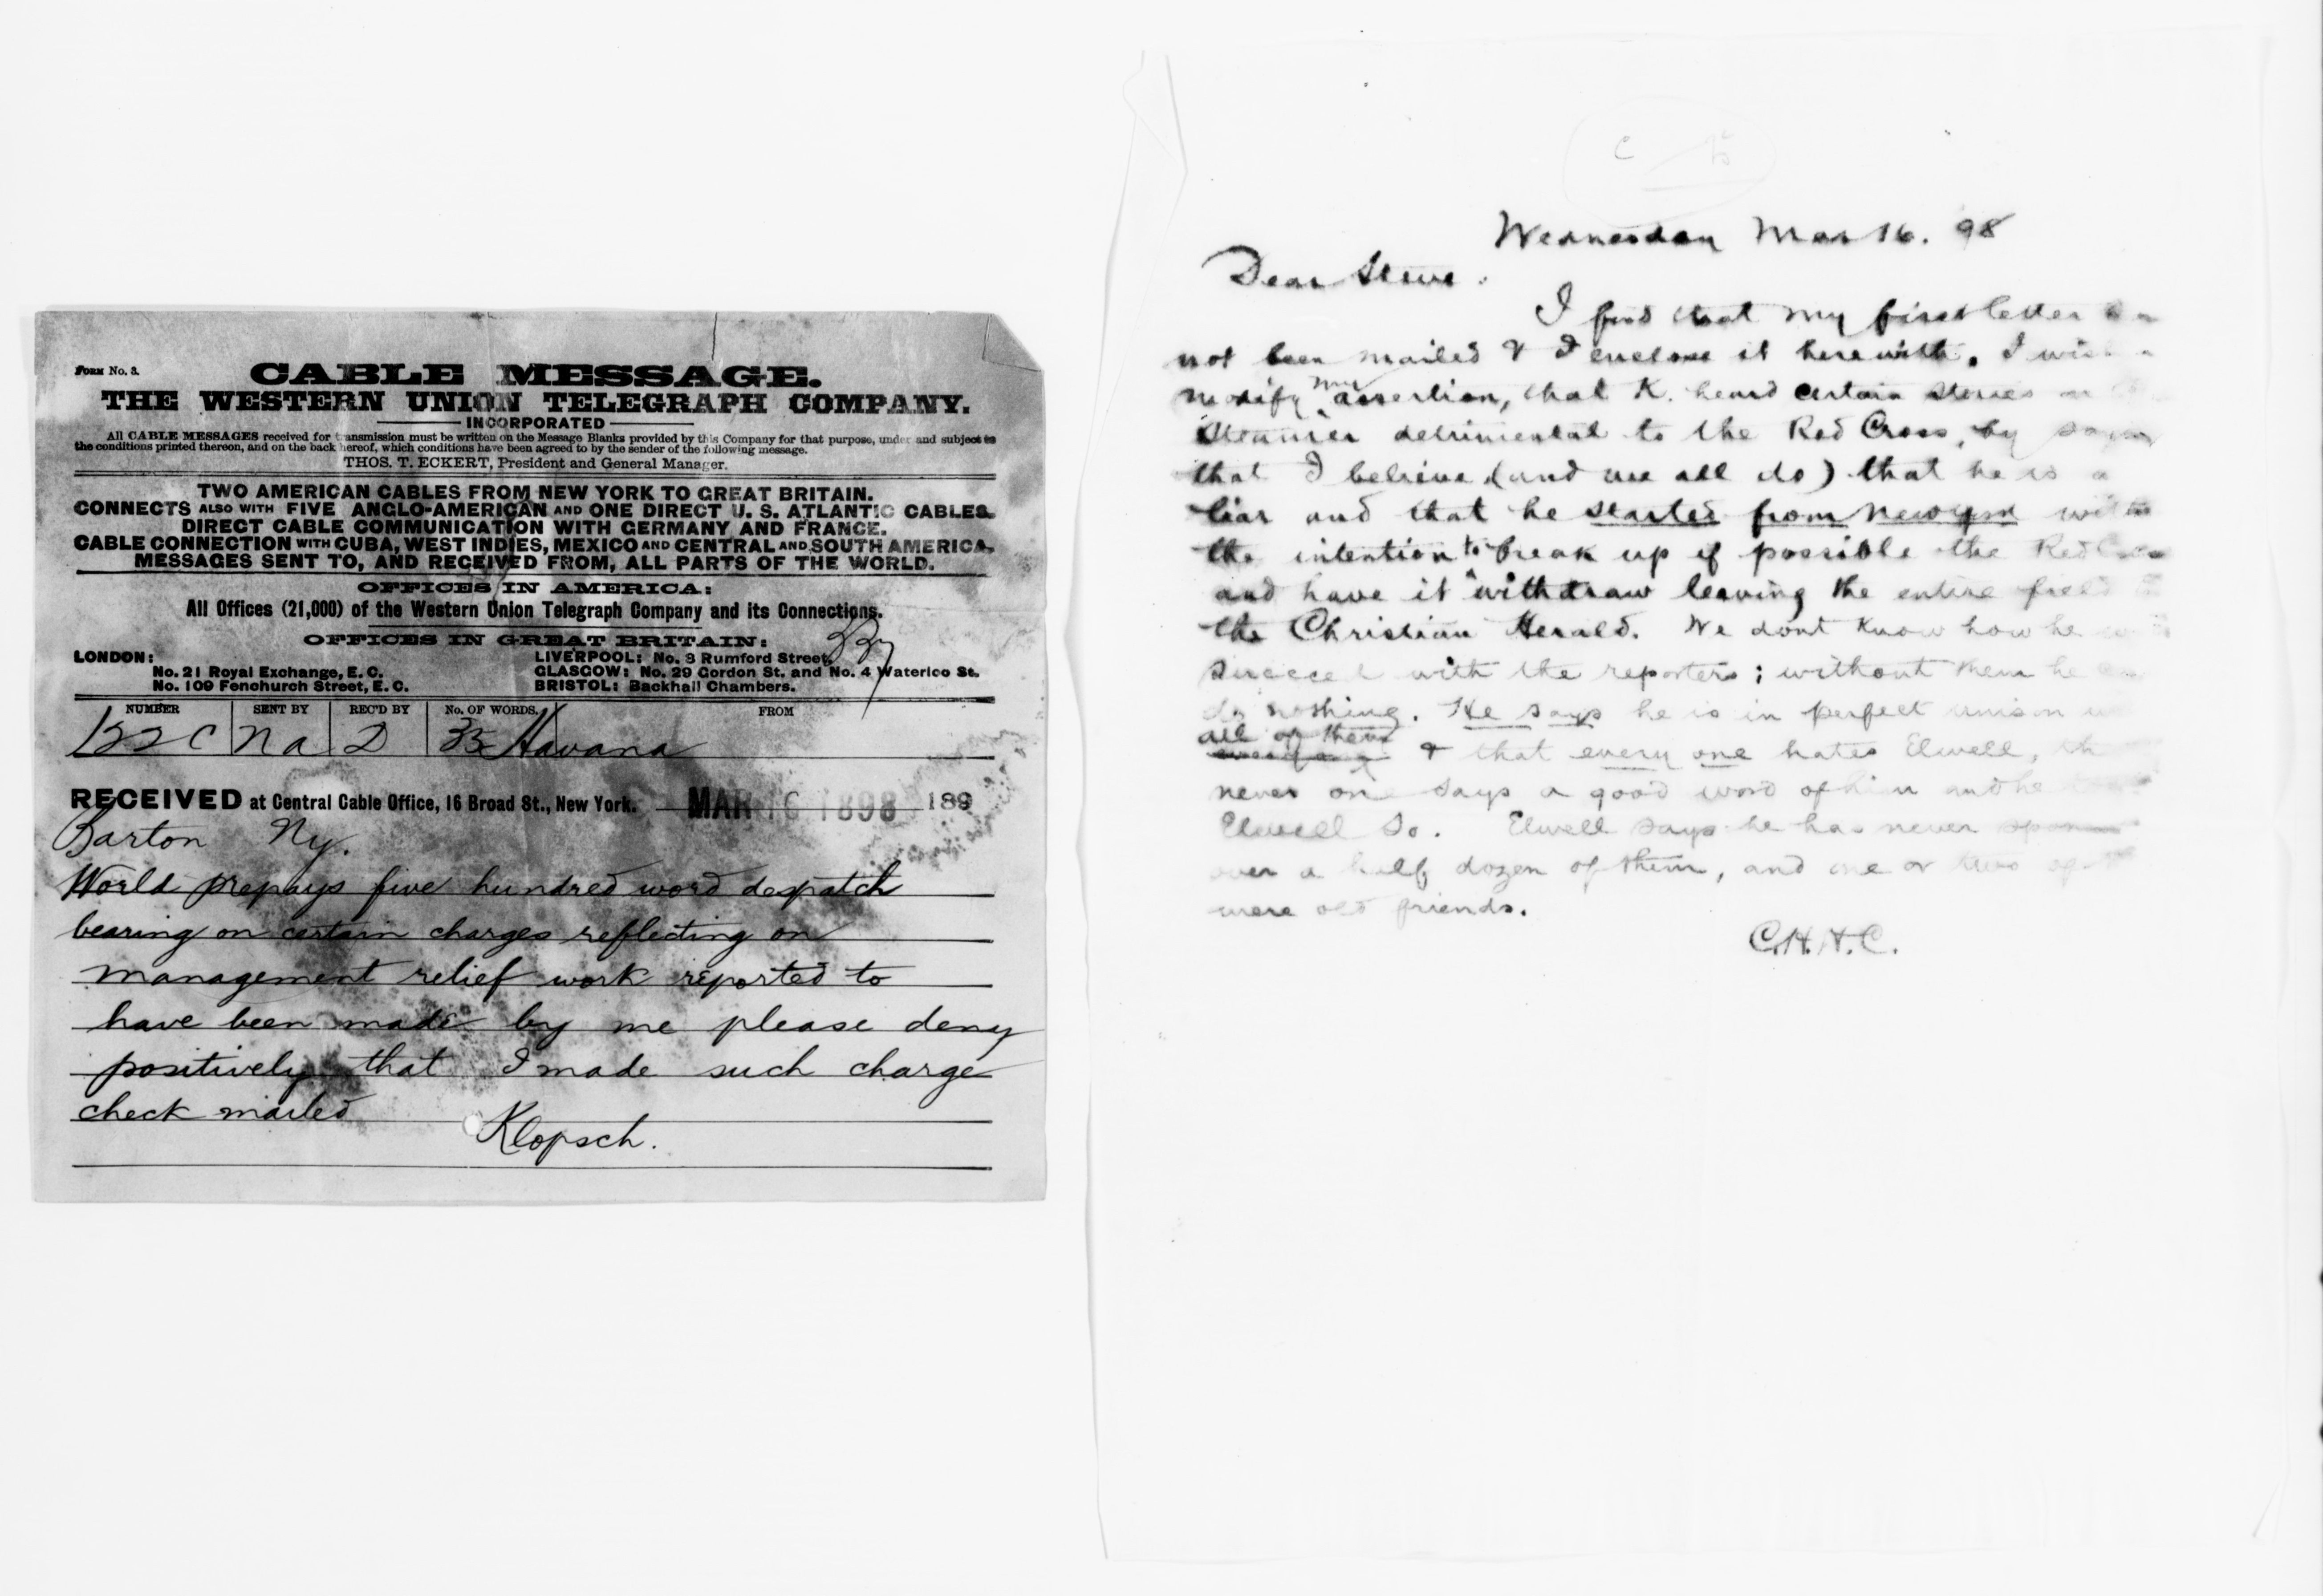 FORM No. 3.
CABLE MESSAGE.
THE WESTERN UNION TELEGRAPH COMPANY.
INCORPORATED
All CABLE MESSAGES received for transmission must be written on the Message Blanks provided by this Company for that purpose, under and subject to
the conditions printed thereon, and on the back hereof, which conditions have been agreed to by the sender of the following message.
THOS. T. ECKERT, President and General Manager.
TWO AMERICAN CABLES FROM NEW YORK TO GREAT BRITAIN.
CONNECTS ALSO WITH FIVE ANGLO-AMERICAN AND ONE DIRECT U. S. ATLANTIC CABLES.
DIRECT CABLE COMMUNICATION WITH GERMANY AND FRANCE.
CABLE CONNECTION WITH CUBA, WEST INDIES, MEXICO AND CENTRAL AND SOUTH AMERICA.
MESSAGES SENT TO, AND RECEIVED FROM, ALL PARTS OF THE WORLD.
OFFICES IN AMERICA:
All Offices (21,000) of the Western Union Telegraph Company and its Connections.
OFFICES IN GREAT BRITAIN:
LONDON:
No. 21 Royal Exchange, E. C.
No. 109 Fenchurch Street, E. C.
LIVERPOOL: No. 3 Rumford Street.
GLASGOW: No. 29 Gordon St. and No. 4 Waterloo St.
BRISTOL: Backhall Chambers.
NUMBER SENT BY REC'D BY No. OF WORDS. FROM
122 C Na D 33 Havana
RECEIVED at Central Cable Office, 16 Broad St., New York. MAR 16 1898 189
Barton Ny.
World prepays five hundred word despatch
bearing on certain charges reflecting on
management relief work reported to
have been made by me please deny
positively that I made such charge
check mailed
Klopsch.
Wednesday Mar 16. 98
Dear Steve:
I find that my first letter
not been mailed & I enclose it herewith. I
modify my assertion, that K. heard certain stories
steamer detrimental to the Red Cross, by
that I believe (and we all do) that he is a
liar and that he started from New York with
the intention to break up if possible the Red
and have it withdraw leaving the entire field
the Christian Herald. We dont know how he
succeed with the reporters; without them he
do nothing. He says he is in perfect unison
all of them & that every one hates Elwell,
never one says a good word of him and he
Elwell so. Elwell says he has never
over a half dozen of them, and one or two of
were old friends.
C.H.H.C.